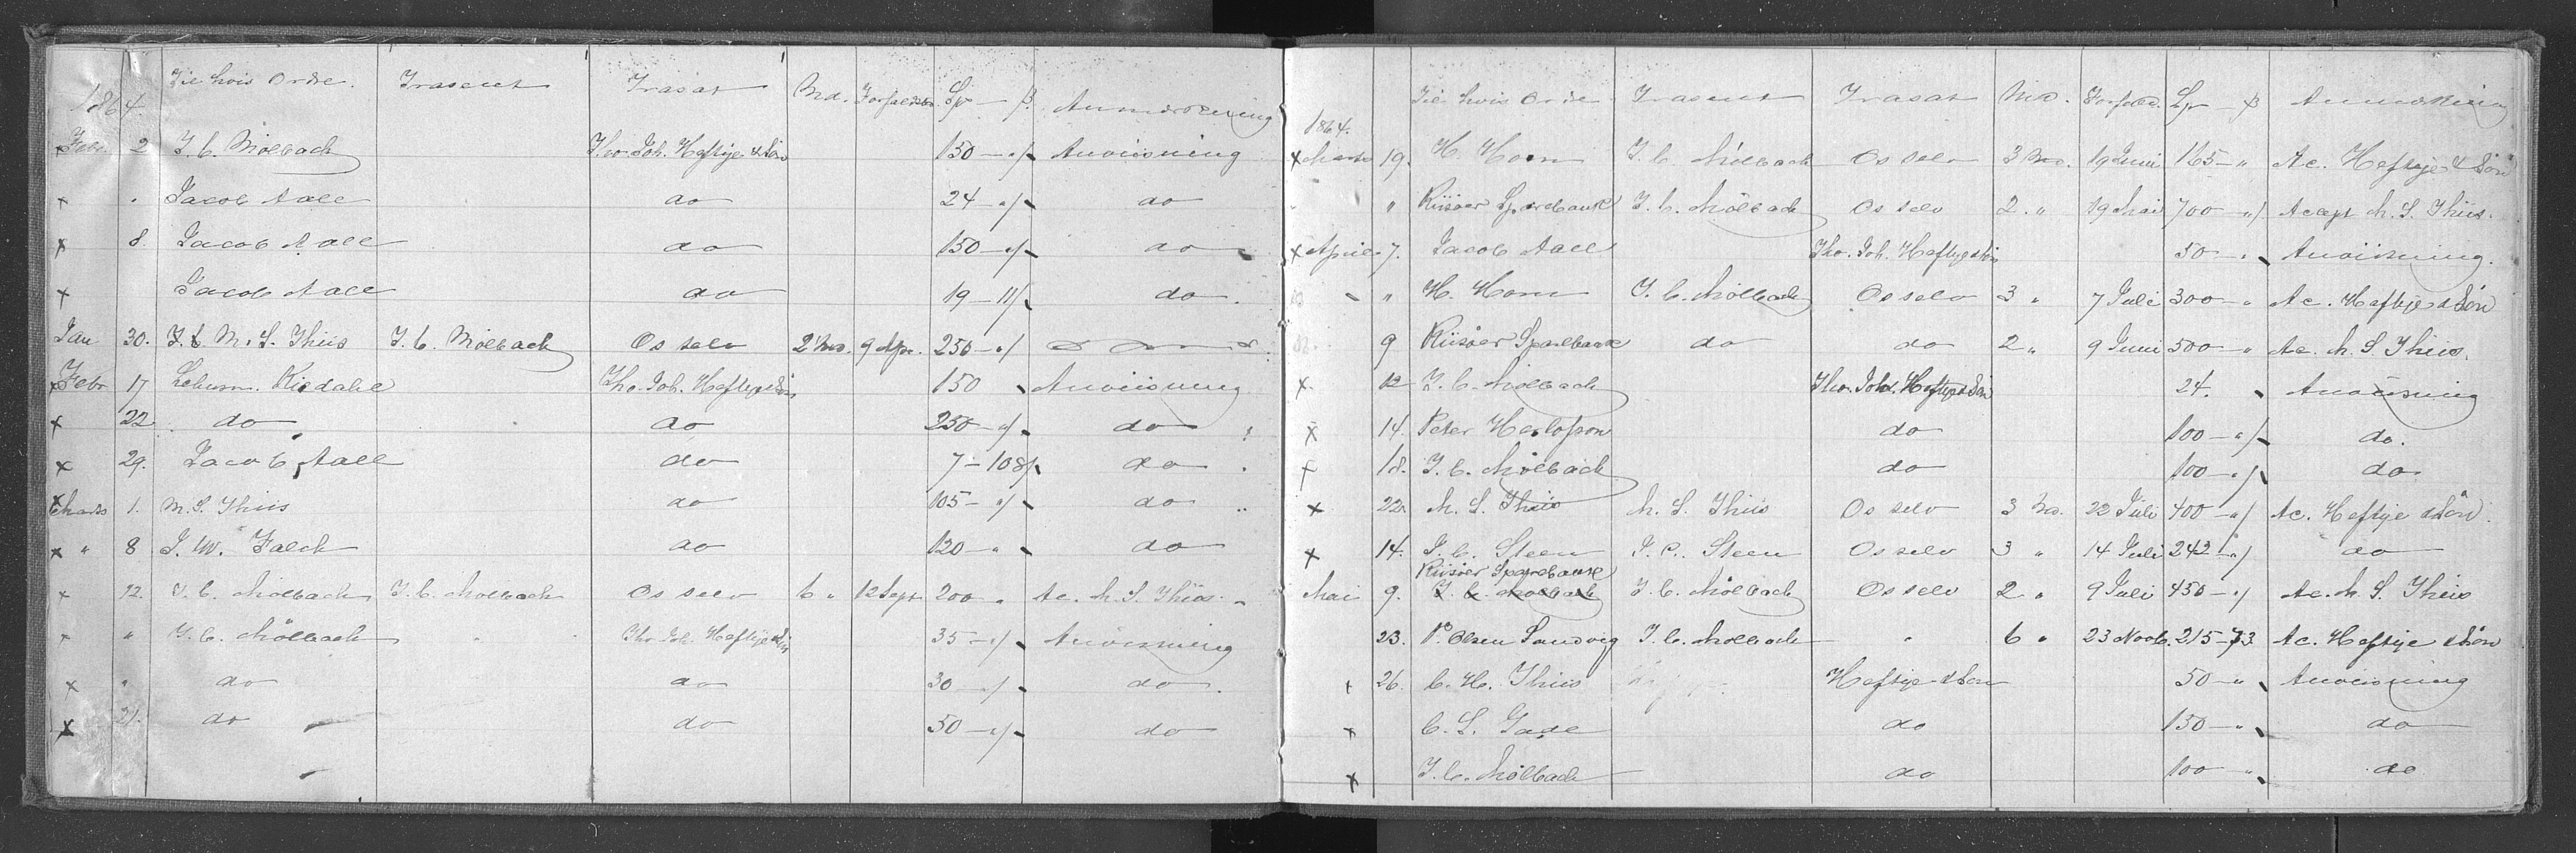 1864. Til hvis Ordre. Trasent Trasat Md. Forfaldst. Sp — ß. Anmærkning
x Febr. 2 J. C. Mölbach Tho. Joh. Heftye & Søn 150 — „/ Anviisning
x „ Jacob Aall do 24 — „/ do
x 8. Jacob Aall do 150 — „/ do
x Jacob Aall do 19 — 11/ do.
Jan 30. M. S. Thiis J. C. Mölbach Os selv 2 Md. 9 Apr. 250 — „/
x Febr 17 Kiødahl Tho. Joh. Heftye & Søn 150 Anviisning
x 22. do do 250 — „/ do
x 29. Jacob Aall do 7 — 108/ do
x Marts 1. M. S. Thiis do 105 — „/ do
x „ 8 J. W. Falch do 120 — „ do
x 12. J. C. Mölbach J. C. Mölbach Os selv 6 „ 12 Sept 200 „ Ac. M. S. Thiis.
x „ J. C. Mölbach Tho. Joh. Heftye & Søn 35 — „/ Anviisning
x „ do do 30 „/ do.
x 21. do do 50 — „/ do
Til hvis Ordre Trasent Trasat Md. Forfaldst. Sp — ß Anmærkning
1864.
x Marts 19. H. Horn J. C. Mölbach Os selv 3 Md. 19 Juni 165 — „ Ac. Heftye & Søn
„ Riisöer Sparebank J. C. Mölbach Os selv 2 „ 19 Mai 700 — „/ Accept M. S. Thiis.
x April 7. Jacob Aall Tho. Joh. Heftye & Søn 50 — „ Anviisning.
„ H. Horn J. C. Mölbach Os selv 3 „ 7 Juli 300 — „ Ac. Heftye & Søn
9 Riisöer Sparebank do do 2 „ 9 Juni 500 — „ Ac. M. S. Thiis.
x 12 J. C. Mölbach Tho. Joh. Heftye & Søn 24. Anviisning
x 14. Peter Herlofson do 100 — „/ do.
x 18. J. C. Mölbach do 100 — „/ do
x 22. M. S. Thiis M. S. Thiis Os selv 3 Md. 22 Juli 400 — „/ Ac. Heftye & Søn.
x 14. J. C. Steen J. C. Steen Os selv 3 „ 14 Juli 242 — „/ do
Riisöer Sparebank
Mai 9. J. C. Mölbach J. C. Mölbach Os selv 2 „ 9 Juli 450 — „/ Ac. M. S. Thiis
23. P. Olsen Sandvig J. C. Mölbach „ 6 „ 23 Novb. 215 — 73 Ac. Heftye & Søn
x 26. C. H. Thiis Heftye & Søn 50 — „ Anviisning
x C. S. Gade do 150 — „ do
x J. C. Mölbach do 100 „ do